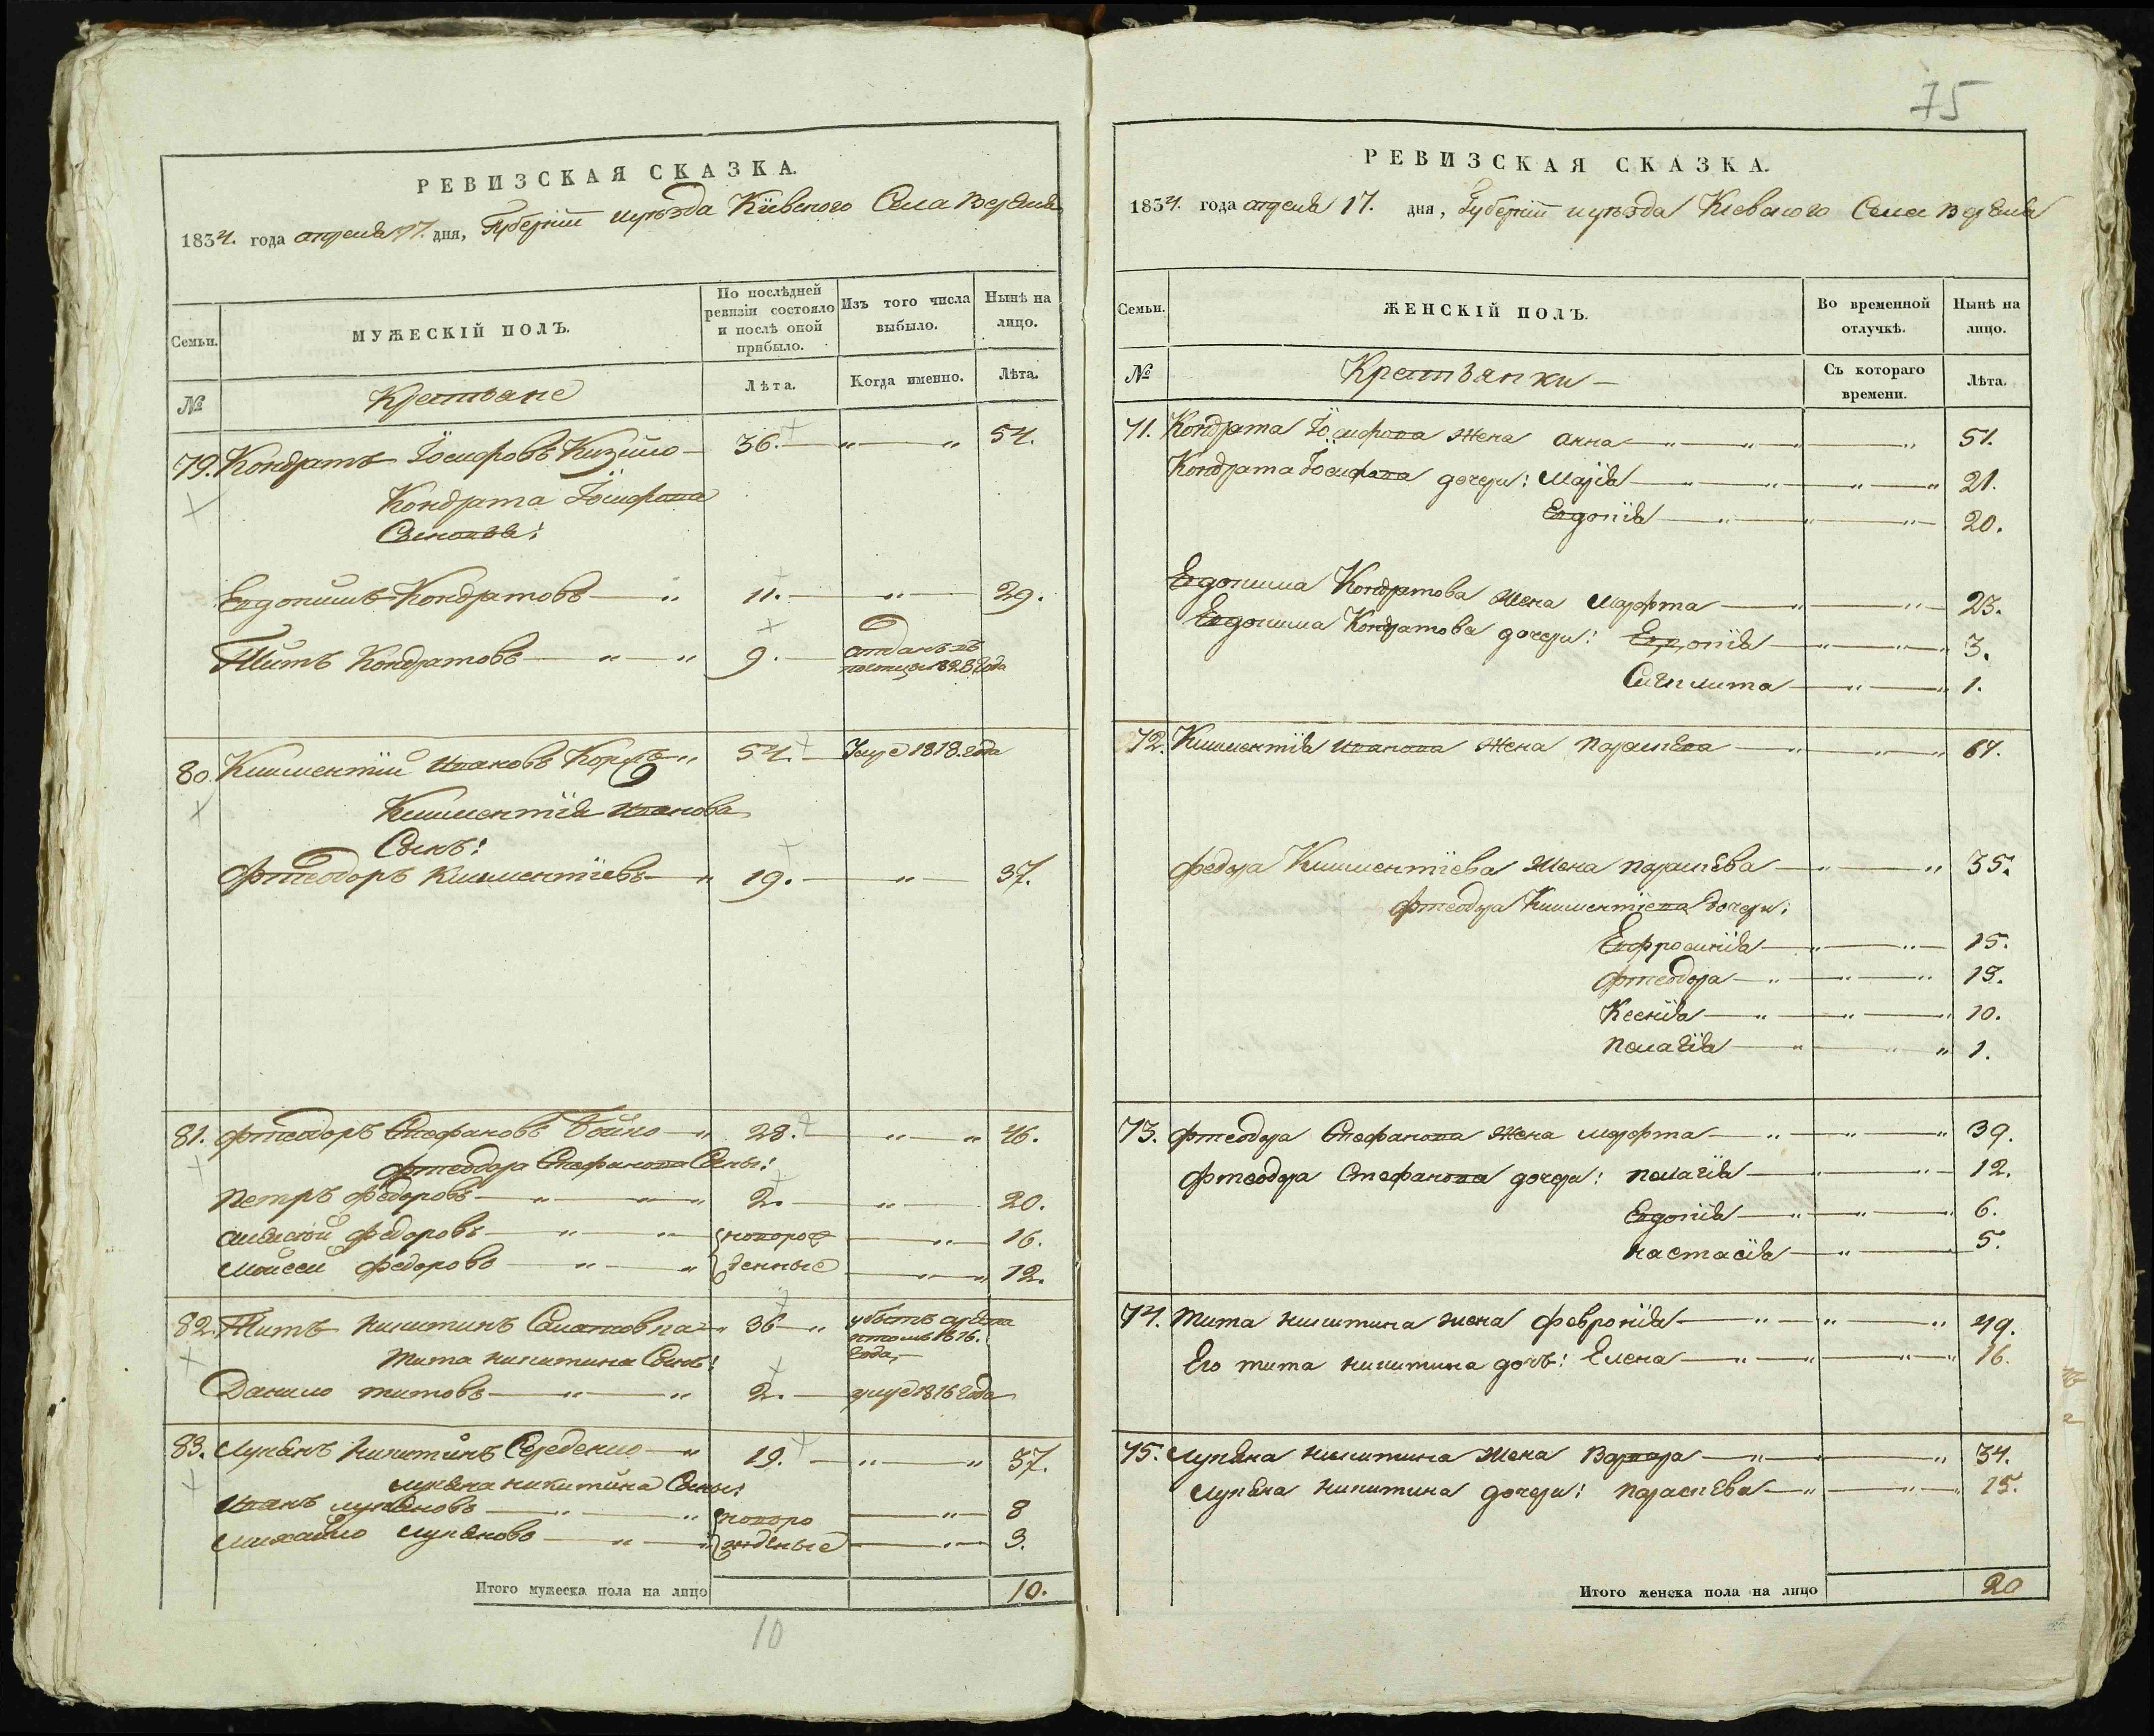 75
РЕВИЗСКАЯ СКАЗКА.
1834. года апреля 17. дня, Губернiи и уѣзда Кiевского Села
Семьи.
МУЖЕСКIЙ ПОЛЪ.
По послѣдней ревизiи состояло и послѣ оной прибыло.
Изъ того числа выбыло.
Нынѣ на лицо.
№
Крестьяне
Лѣта.
Когда именно.
Лѣта.
79. Кондратъ Iосифовъ 36. — „ — „ 54.
Кондрата Iосифова
Сыновья:
Евдокимъ Кондратовъ — „ 11. — „ — 29.
Титъ Кондратовъ — „ — „ 9. — отданъ въ
1828 года
80. Климентiй Ивановъ „ 54. — Умре 1818. года
Климентiя Иванова
Сынъ:
Фтеодоръ Климентiевъ — „ 19. — „ — 37.
81. Фтеодоръ Стефановъ Бойко — „ 28. — „ — „ 46.
Фтеодора Стефанова Сыны:
Петръ Федоровъ — „ — „ 2. — „ — 20.
Алексей Федоровъ — „ — „ новорож — „ — 16.
Моисей Федоровъ — „ — „ денные — „ — „ 12.
82. Титъ Никитинъ „ 36 — „
1816.
года
Тита Никитина Сынъ:
Данило Титовъ — „ — „ 2. — умре 1816 года
83. Лукянъ Никитинъ Середенко — „ 19. — „ — „ 37.
Лукяна Никитина Сыны:
Иванъ Лукяновъ — „ — „ новоро — „ — 8
Михайло Лукяновъ — „ — „ жденые — „ — 3.
Итого мужеска пола на лицо 10.
10
РЕВИЗСКАЯ СКАЗКА.
1834. года апреля 17. дня, Губернiи и уѣзда Кiевского Села
Семьи.
ЖЕНСКIЙ ПОЛЪ.
Во временной отлучкѣ.
Нынѣ на лицо.
№
Крестьянки —
Съ котораго времени.
Лѣта.
71. Кондрата Iосифова жена Анна — „ — „ — „ — „ 51.
Кондрата Iосифова дочери: Марiя — „ — „ — „ — „ 21.
Евдокiя — „ — „ — „ — 20.
Евдокима Кондратова жена Марфта — „ — „ — 23.
Евдокима Кондратова дочери: Евдокiя — „ — „ 3.
— „ — „ 1.
72. Климентiя Иванова жена Параскева — „ — „ — „ 67.
Федора Климентiева жена Параскева — „ — „ 35.
Фтеодора Климентiева дочери:
Евфросинiя — „ — „ — 15.
Фтеодора — „ — „ — „ 13.
Ксенiя — „ — „ — „ 10.
Пелагiя — „ — „ — „ 1.
73. Фтеодора Стефанова жена Марфта — „ — „ — „ 39.
Фтеодора Стефанова дочери: Пелагiя — „ — „ — 12.
Евдокiя — „ — „ — „ 6.
Настасiя — „ — 5.
74. Тита Никитина жена Февронiя — „ — „ — „ 49.
Его Тита Никитина дочь: Елена — „ — „ — „ 16.
75. Лукяна Никитина жена Варвара — „ — „ 34.
Лукяна Никитина дочери: Параскева — „ — „ — „ 15.
Итого женска пола на лицо 20